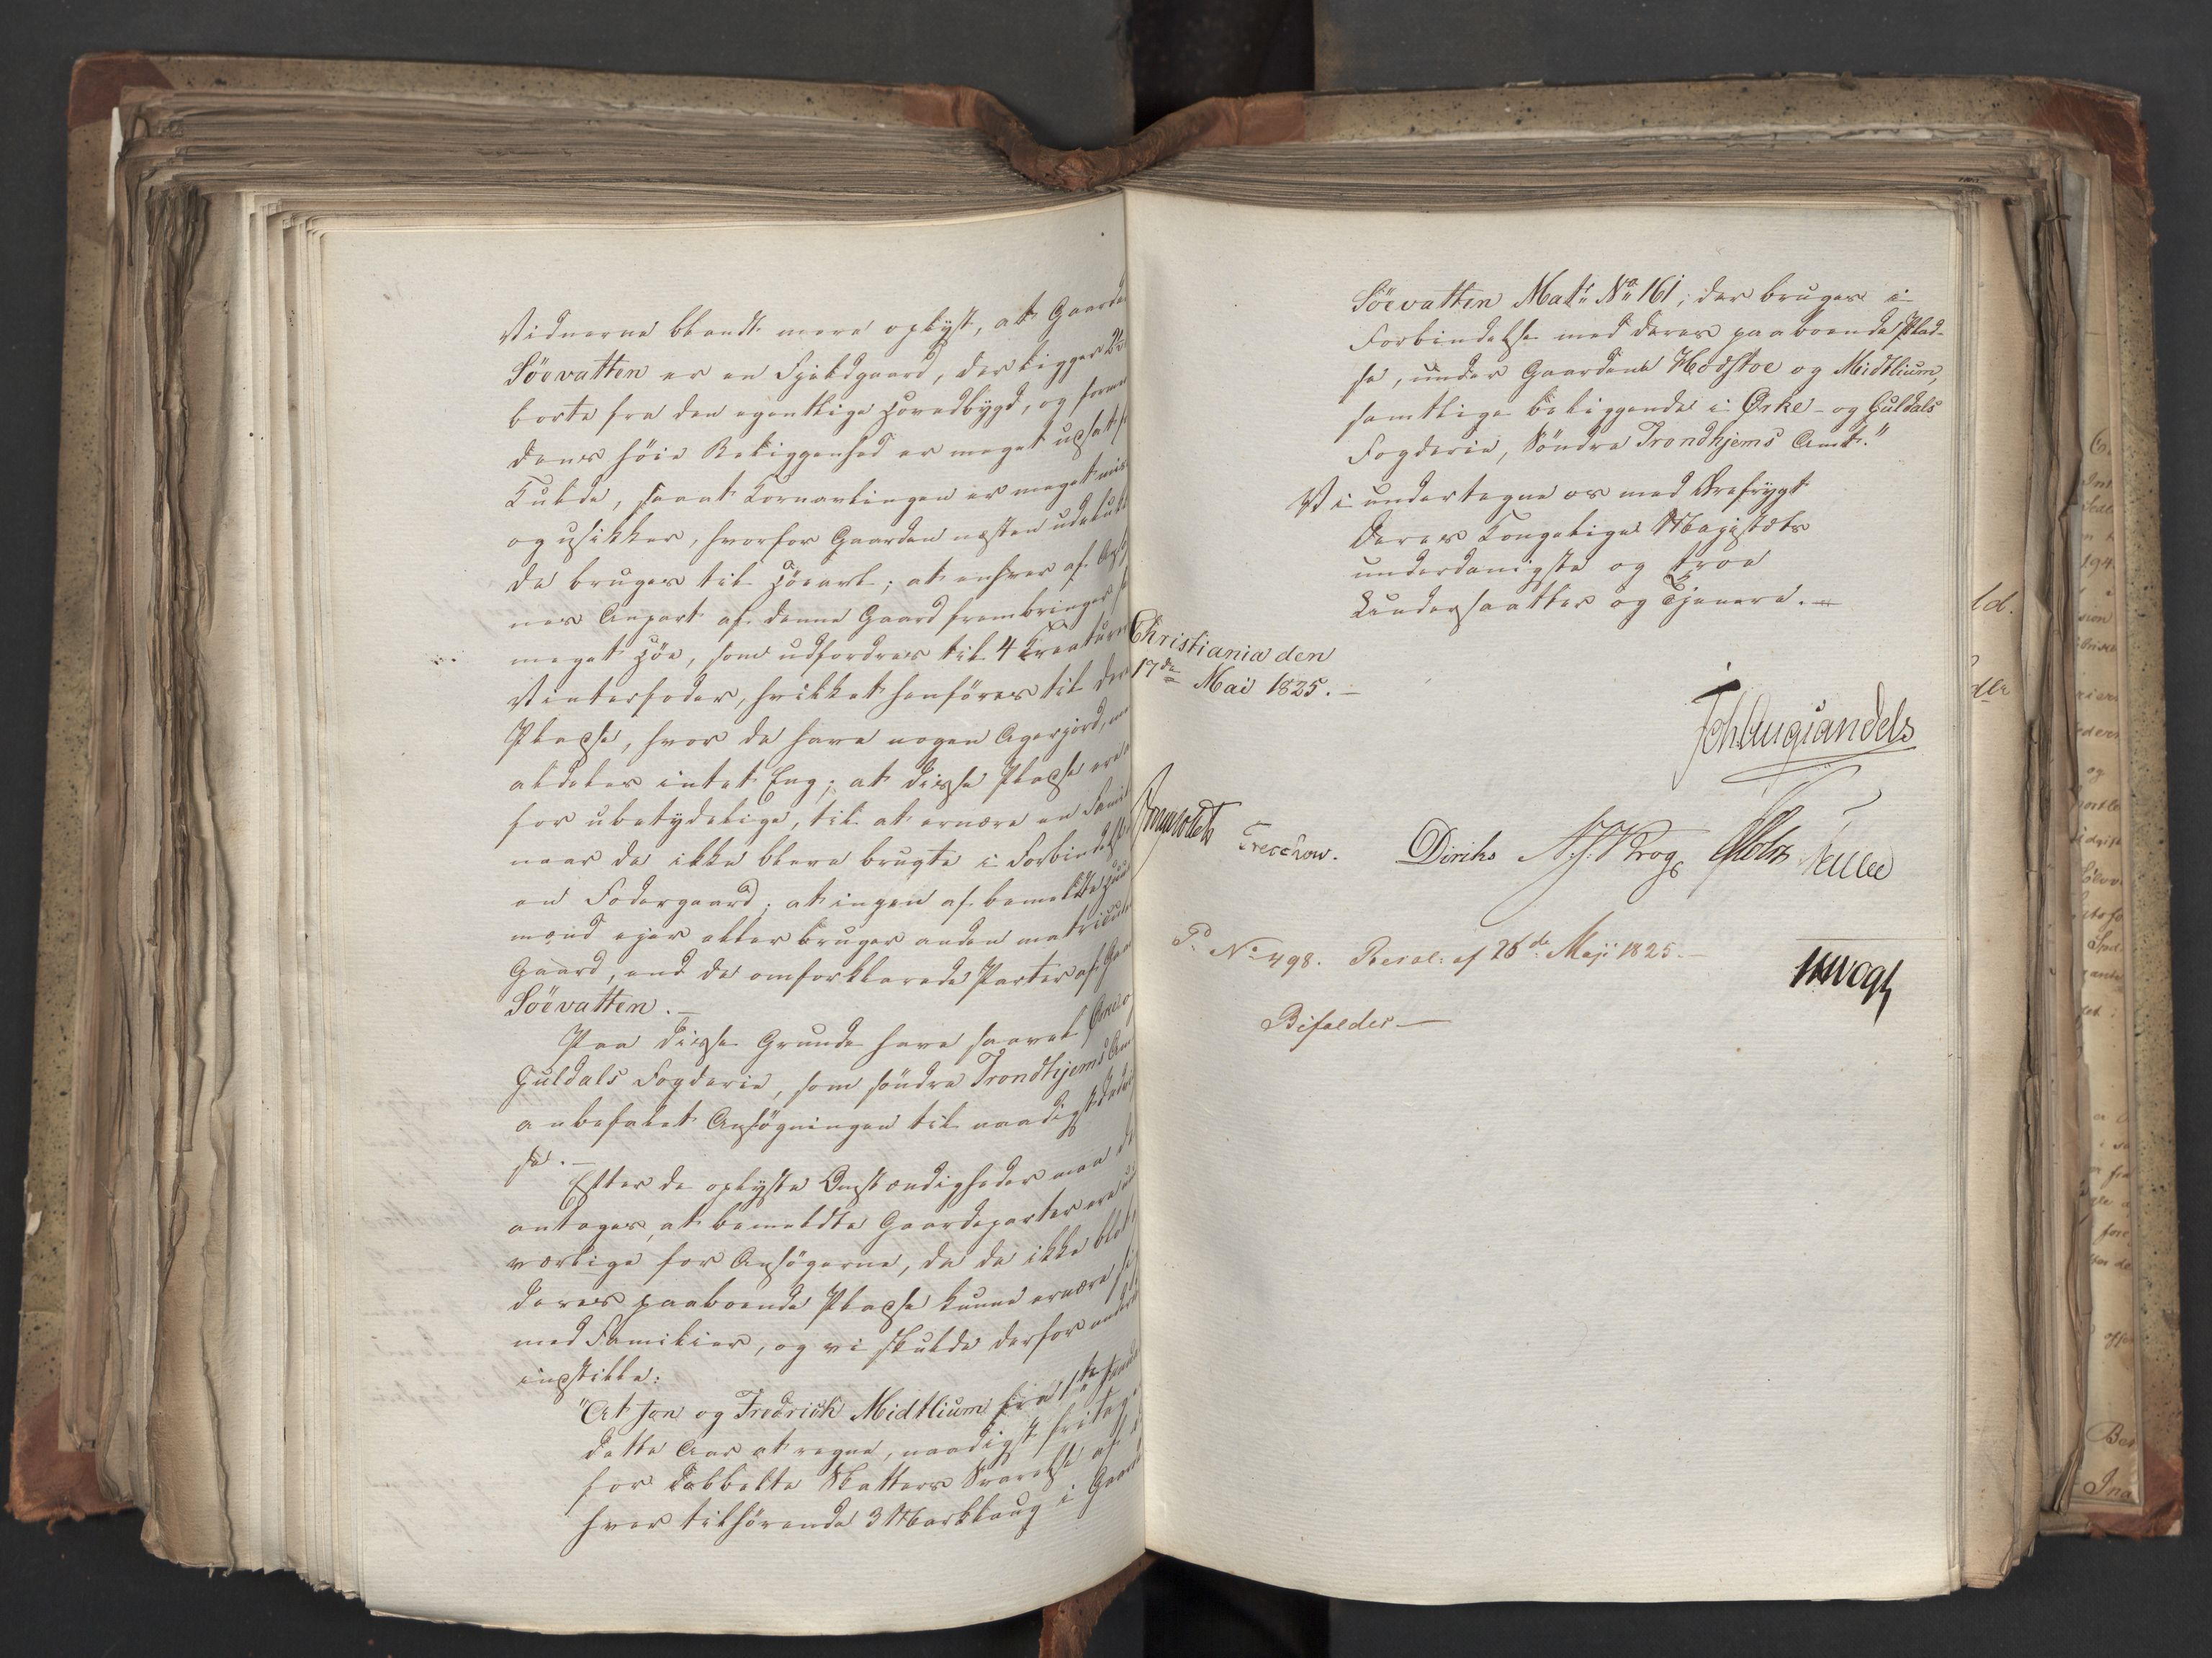 Vidnerne blandt mere oplyst, at Gaarden
Söevatten er en Fjeldgaard, der ligger 2
borte fra den egentlige Hovedbygd, og formed
denes höie Beliggenhed er meget udsat f
Kulde, saaat Kornavlingen er meget mis
og usikker, hvorfor Gaarden næsten udeluk
de bruges til Höeavl; at enhver af Ansög
nes Anpart af denne Gaard frembringer s
meget Höe, som udfordres til 4 Creaturer
Vinterfoder, hvilket henföres til der
Pladse, hvor de have nogen Agerjord, men
aldeles intet Eng; at disse Pladse ere
for ubetydelige, til at ernære en Famil
naar de ikke bleve brugte i Forbindelse
en Fodergaard; at ingen af bemeldte Huus
mænd ejer eller bruger anden matricule
Gaard, end de omforklarede Parter af Gaar
Söevatten. –
Paa disse Grunde have saavel Örke o
Guldals Fogderie, som söndre Trondhjems Am
anbefalet Ansögningen til naadigst Bön
se. –
Efter de oplyste Omstændigheder maa d
antages, at bemeldte Gaardeparter ere u
værlige for Ansögerne, da de ikke blot
deres paaboende Pladse kunne ernære si
med Familier, og vi skulde derfor under
indstille:
"At Jon og Fredrich Midtlium fra 1ste Janu
dette Aar at regne, naadigst fritag
for dobbelte Skatters Svarelse af d
hver tilhörende 3 Marklaug i Gaard
Söevatten Matr. No 161, der bruges i
Forbindelse med deres paaboende Plad-
se, under Gaardene Hodstoe og Midtlium,
samtlige beliggende i Örke- og Guldals
Fogderie, Söndre Trondhjems Amt."
Vi undertegne os med Ærefrygt
Deres Kongelige Majestæts
underdanigste og troe
Undersaatter og Tjenere. –
Christiania den
17de Mai 1825. –
Joh Aug Sandels
Sommerhielm Treschow. Diriks N. J. Krog Holst Fasting
Pd No 498. Resol: af 26de Maji 1825. –
Bifaldes –
JHVogt